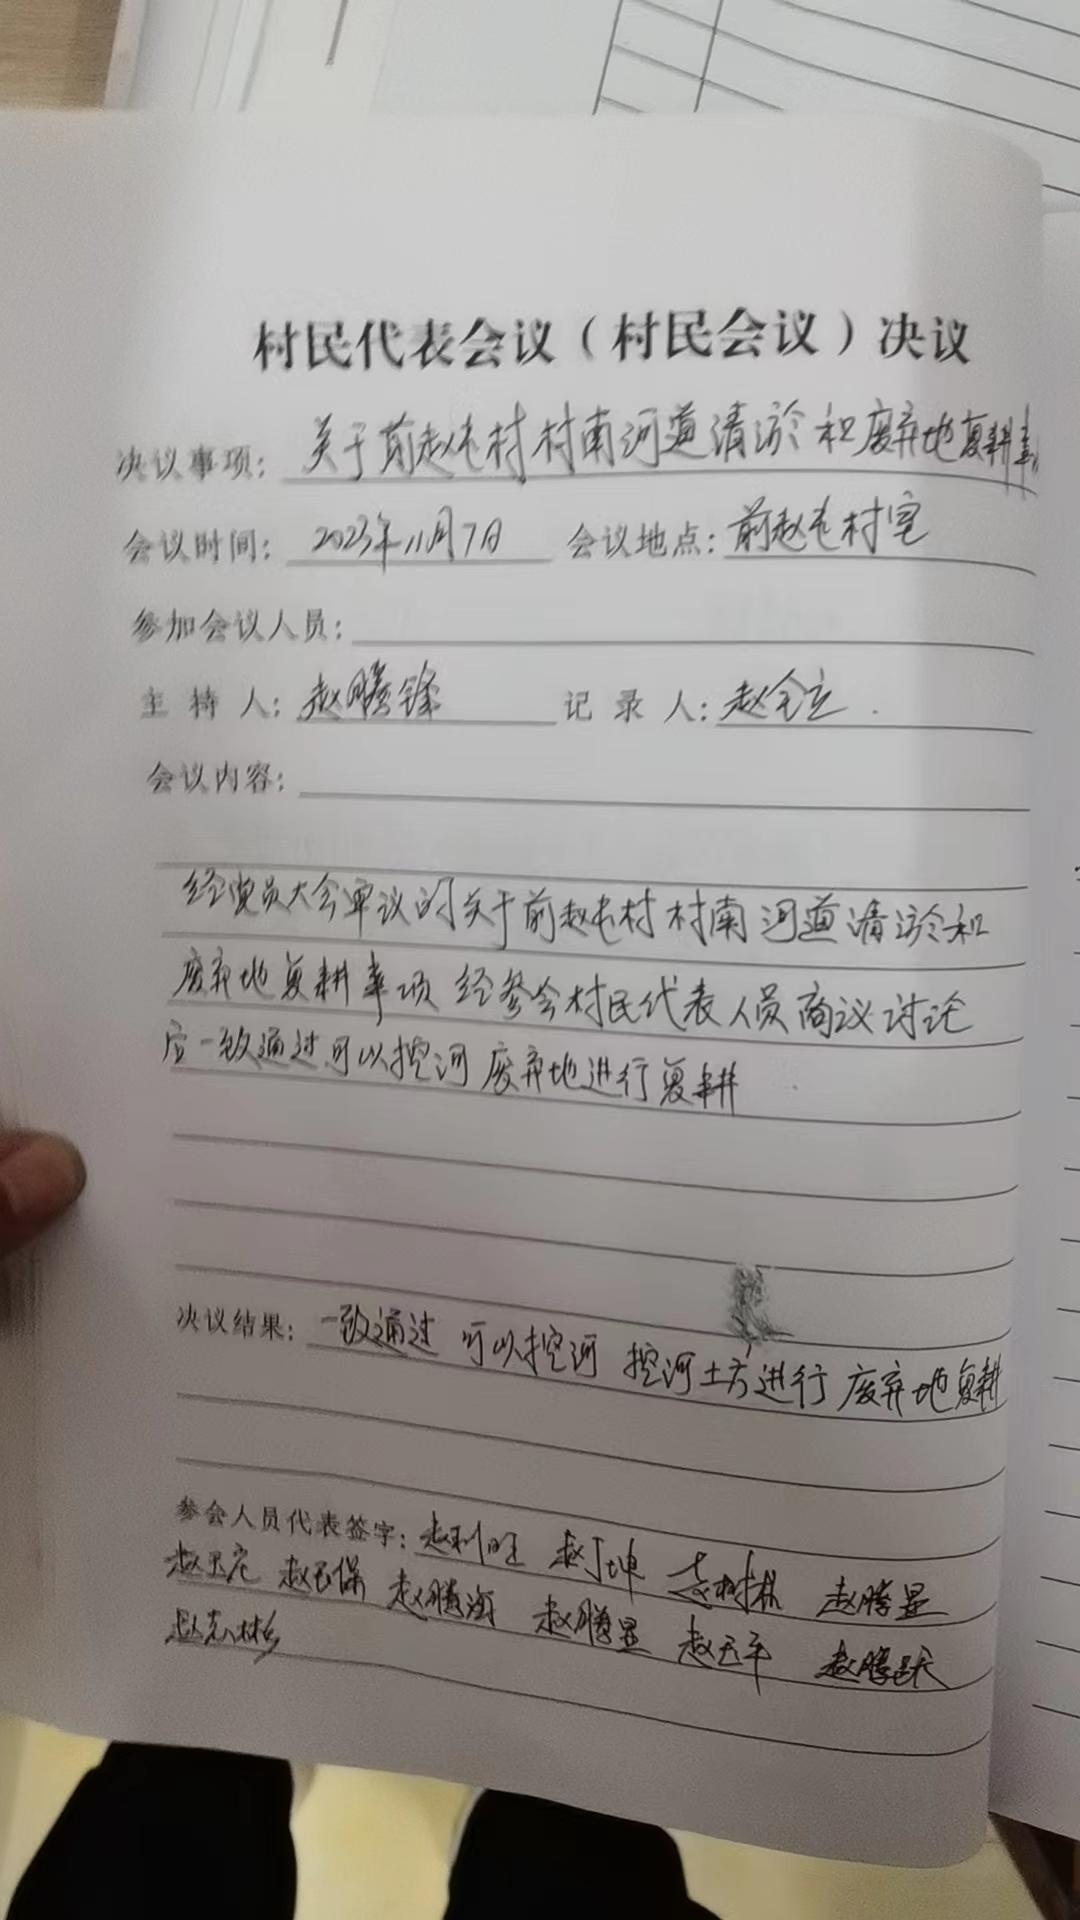 村民代表会议（村民会议）决议
决议事项：关于前赵屯村村南河道清淤和废弃地复耕事
会议时间：2023年11月7日 会议地点：前赵屯村室
参加会议人员：
主持人：赵腾锋 记录人：赵全立.
会议内容：
经党员大会审议的关于前赵屯村村南河道清淤和
废弃地复耕事项 经参会村民代表人员商议讨论
应一致通过可以挖河 废弃地进行复耕
决议结果：一致通过 可以挖河 挖河土方进行废弃地复耕
参会人员代表签字：赵利旺 赵 坤 赵树林 赵腾显
赵玉 赵玉保 赵腾 赵腾显 赵玉平 赵腊跃
赵志彬